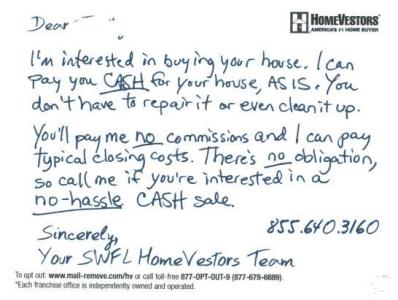 Dear
HOMEVESTORS®
AMERICA'S #1 HOME BUYER
I'm interested in buying your house. I can
pay you CASH for your house, AS IS. You
don't have to repair it or even clean it up.
You'll pay me no commissions and I can pay
typical closing costs. There's no obligation,
so call me if you're interested in a
no-hassle CASH sale.
855.640.3160
Sincerely,
Your SWFL HomeVestors Team
To opt out: www.mail-remove.com/hv or call toll-free 877-OPT-OUT-9 (877-678-6889).
*Each franchise office is independently owned and operated.